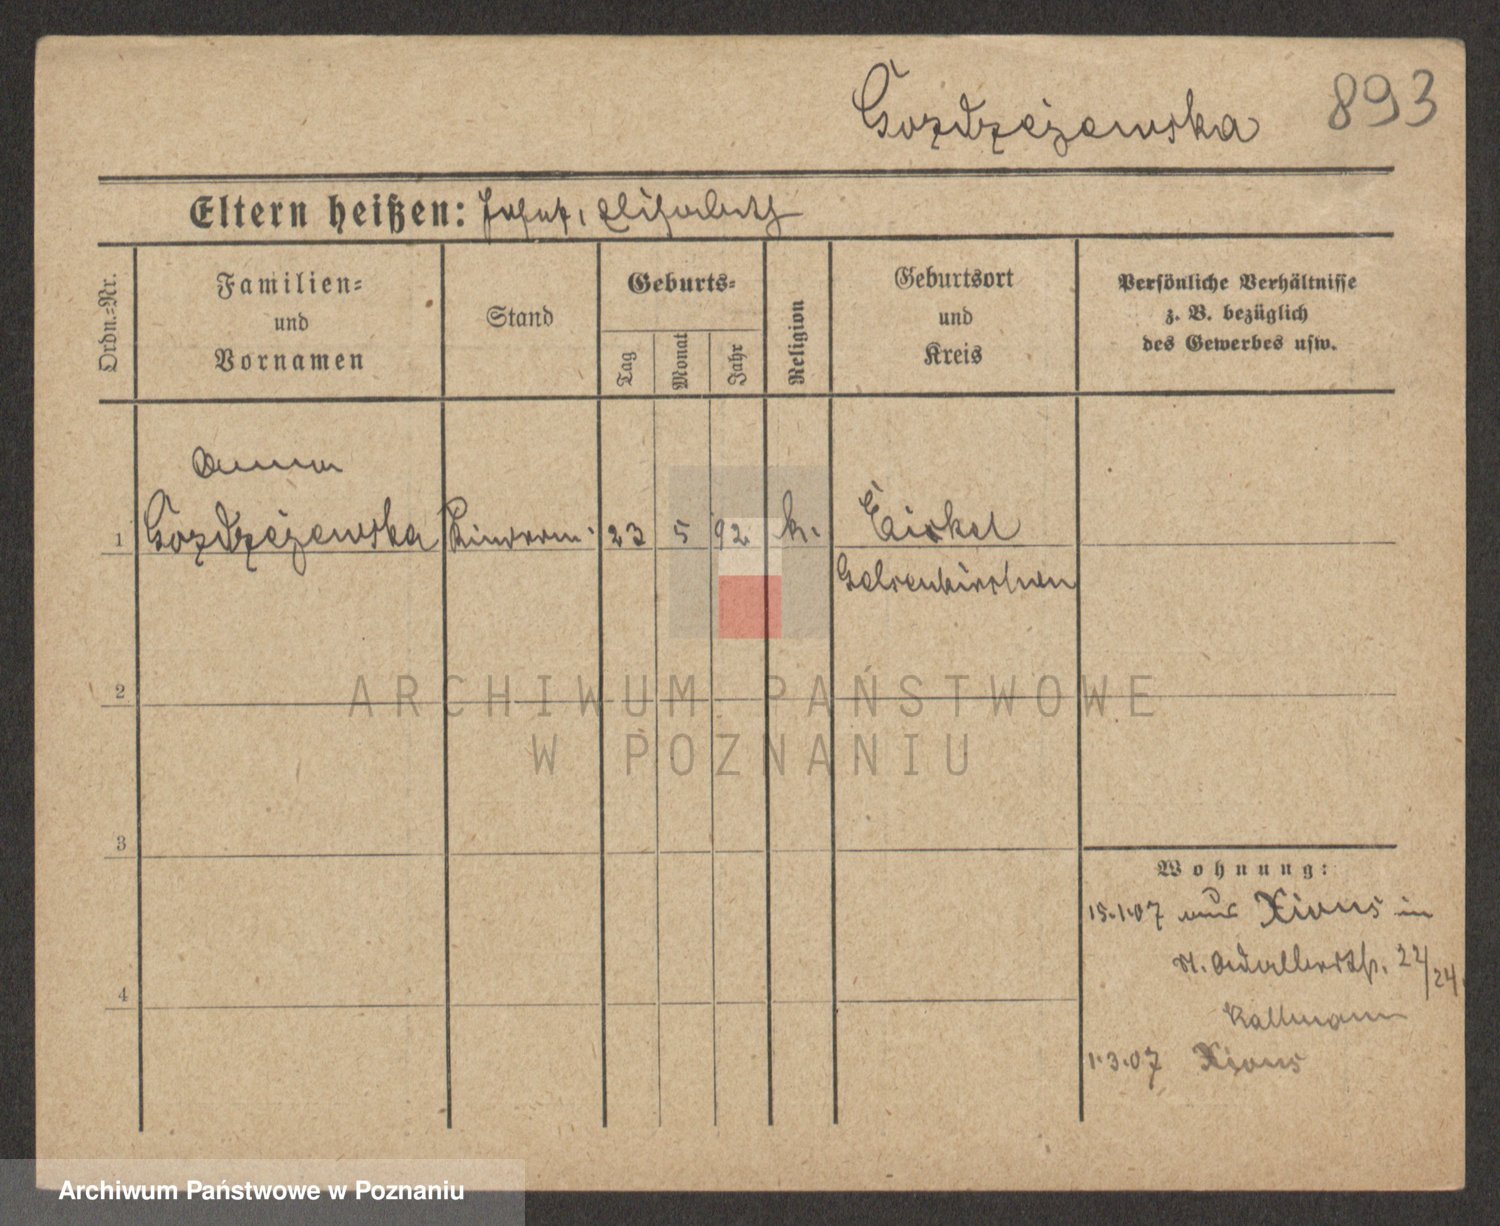 Gozdzeżewska 893
Eltern heißen: Josef, Elisabeth
Ordn.=Nr.
Familien=
und
Vornamen
Stand
Geburts=
Tag
Monat
Jahr
Religion
Geburtsort
und
Kreis
Persönliche Verhältnisse
z. B. bezüglich
des Gewerbes usw.
Anna
1 Gozdzeżewska Kinderm. 23 5 92 k. Eickel
Gelsenkirchen
2
ARCHIWUM PAŃSTWOWE
W POZNANIU
3
Wohnung:
15.1.07 aus Xions in
St. Adalbertstr. 22/24.
Kallmann
4
1.3.07 Xions
Archiwum Państwowe w Poznaniu